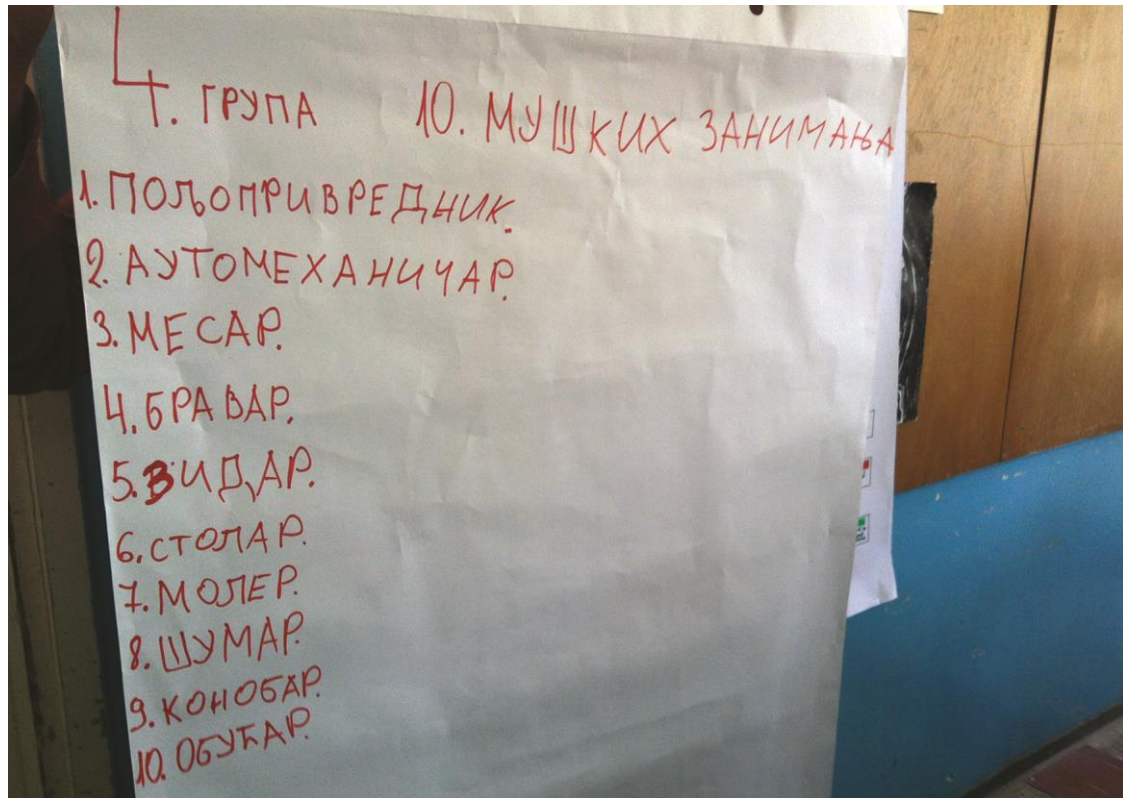 4. ГРУПА 10. МУШКИХ ЗАНИМАЊА
1. ПОЉОПРИВРЕДНИК.
2. АУТОМЕХАНИЧАР.
3. МЕСАР.
4. БРАВАР.
5. ЗИДАР.
6. СТОЛАР.
7. МОЛЕР.
8. ШУМАР.
9. КОНОБАР.
10. ОБУЋАР.